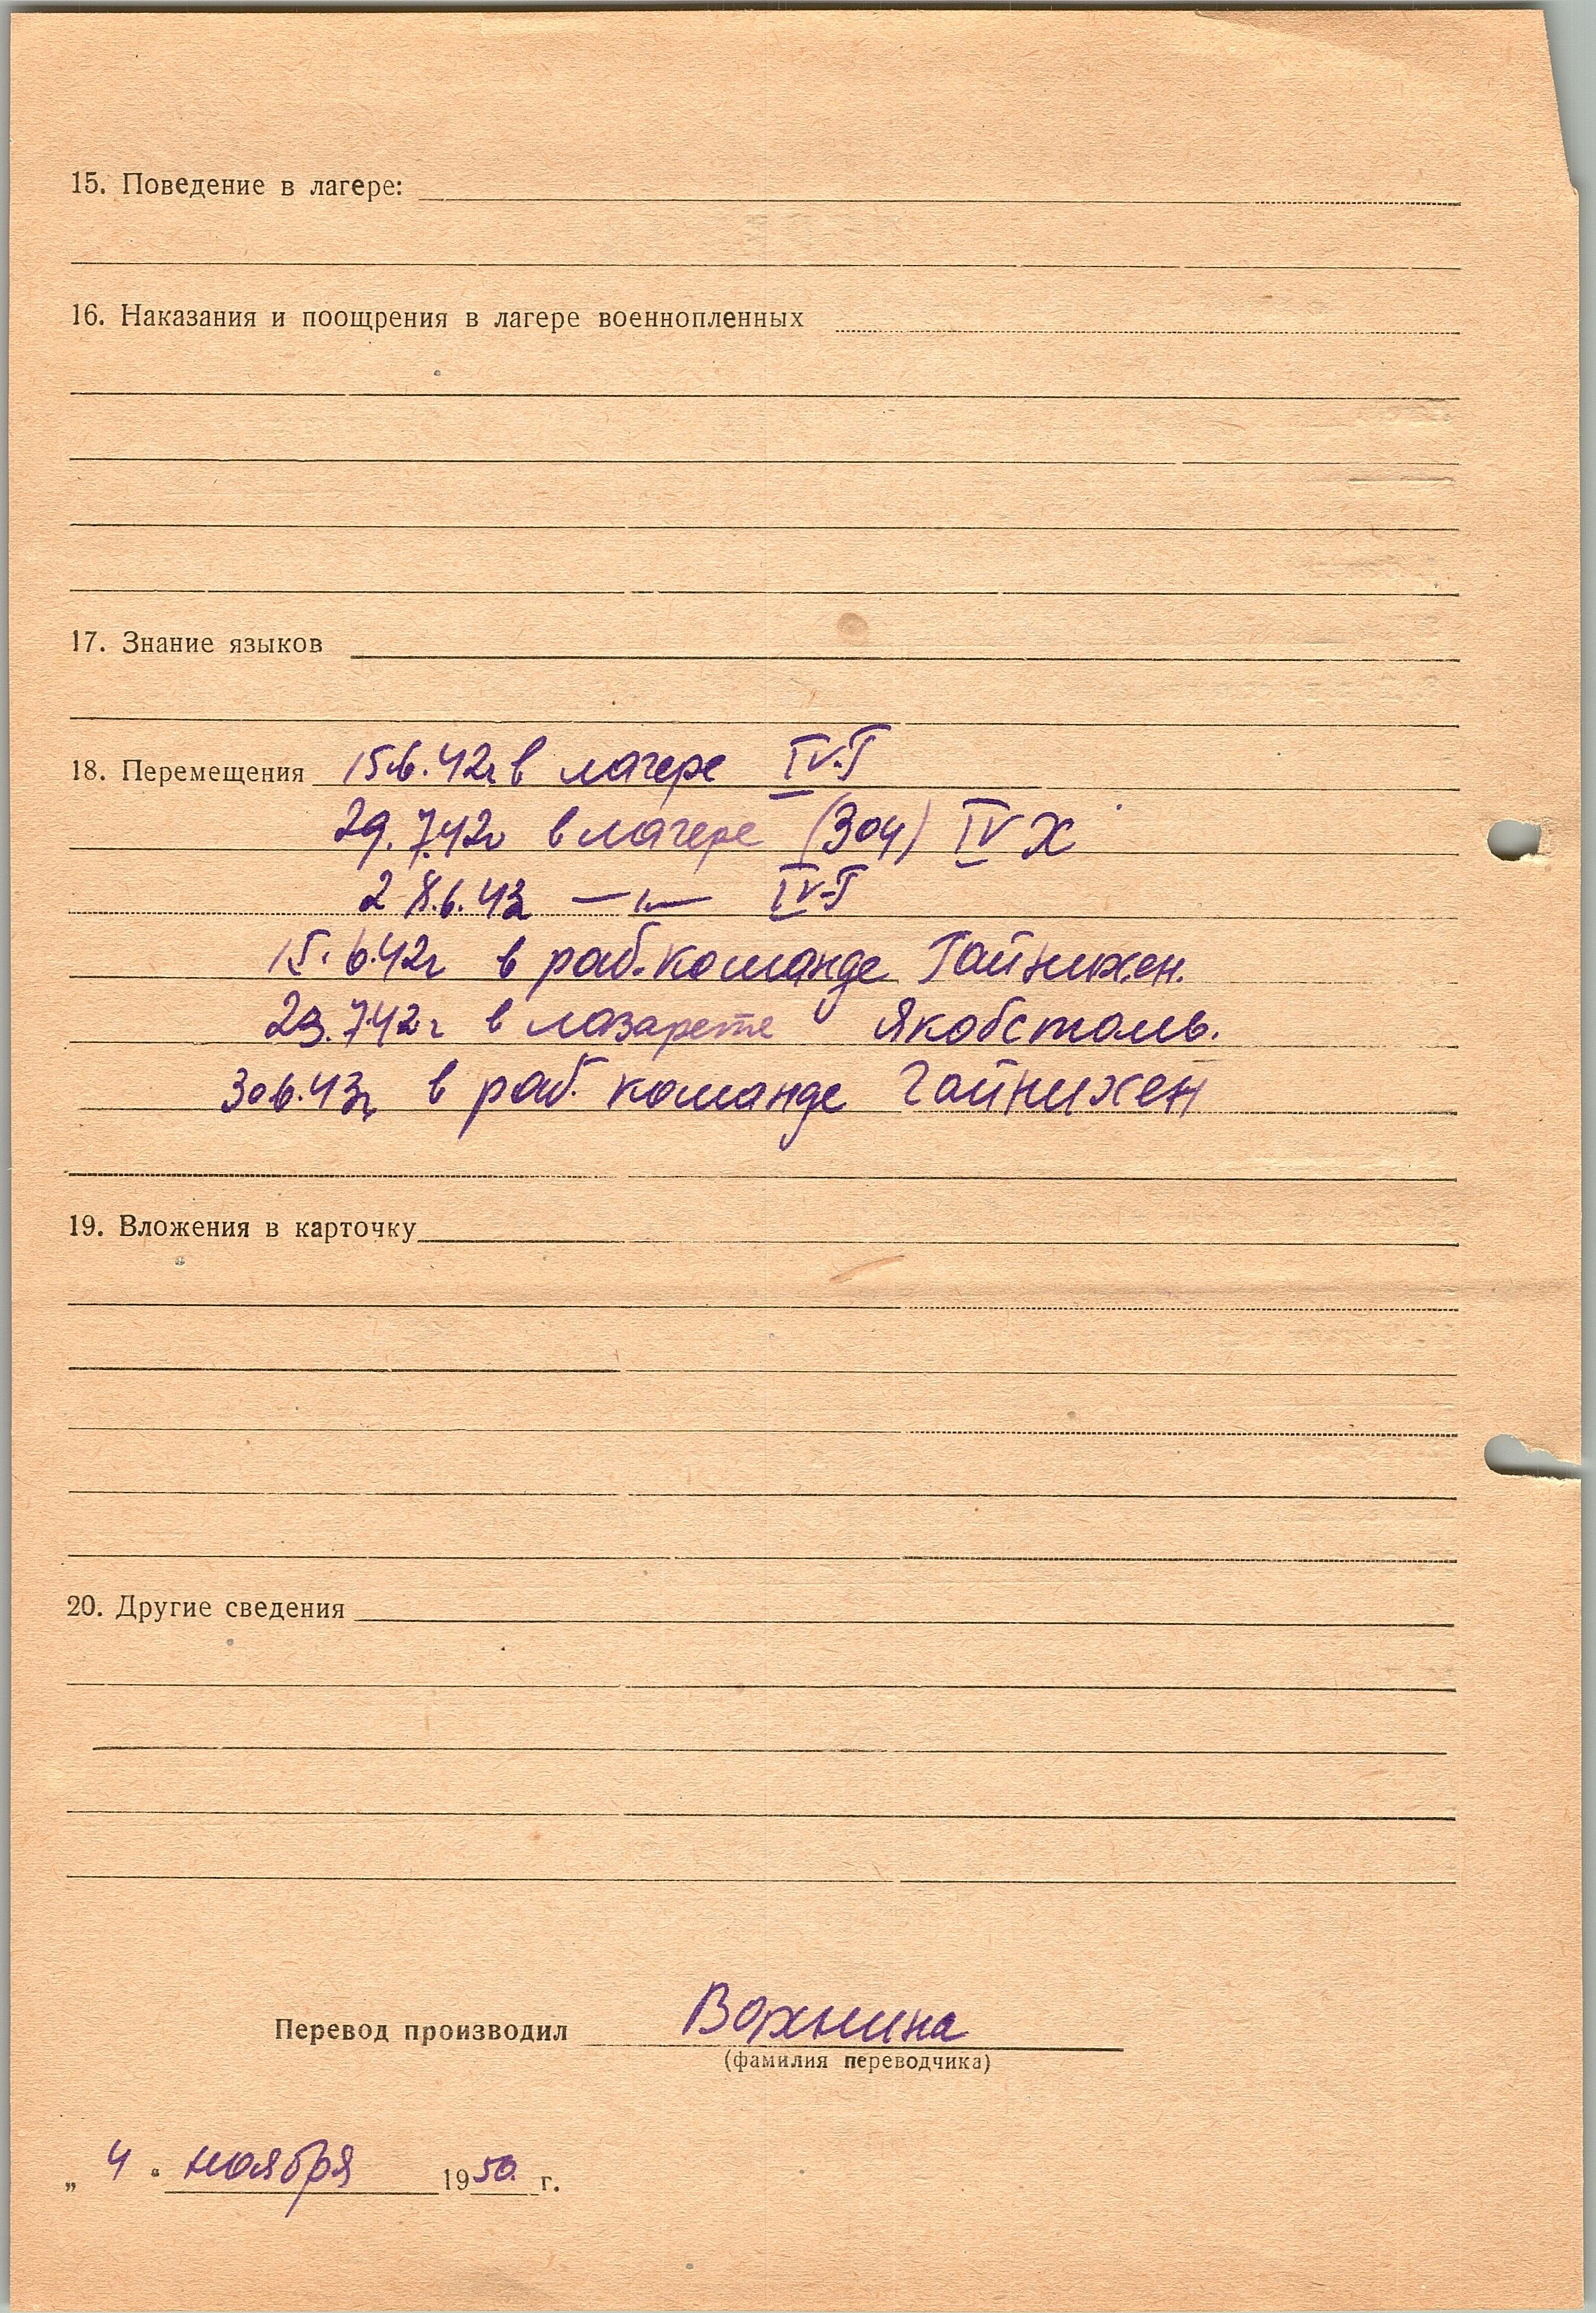 15. Поведение в лагере:
16. Наказания и поощрения в лагере военнопленных
17. Знание языков
18. Перемещения 15.6.42г в лагере IV-Г
29.7.42г в лагере (304) IV Х
28.6.43 —〃— IV-Г
15.6.42г в раб.команде Гайнихен.
29.7.42г в лазарете Якобсталь.
30.6.43г в раб. команде Гайнихен
19. Вложения в карточку
20. Другие сведения
Перевод производил Вахнина
(фамилия переводчика)
„ 4 “ ноября 1950 г.